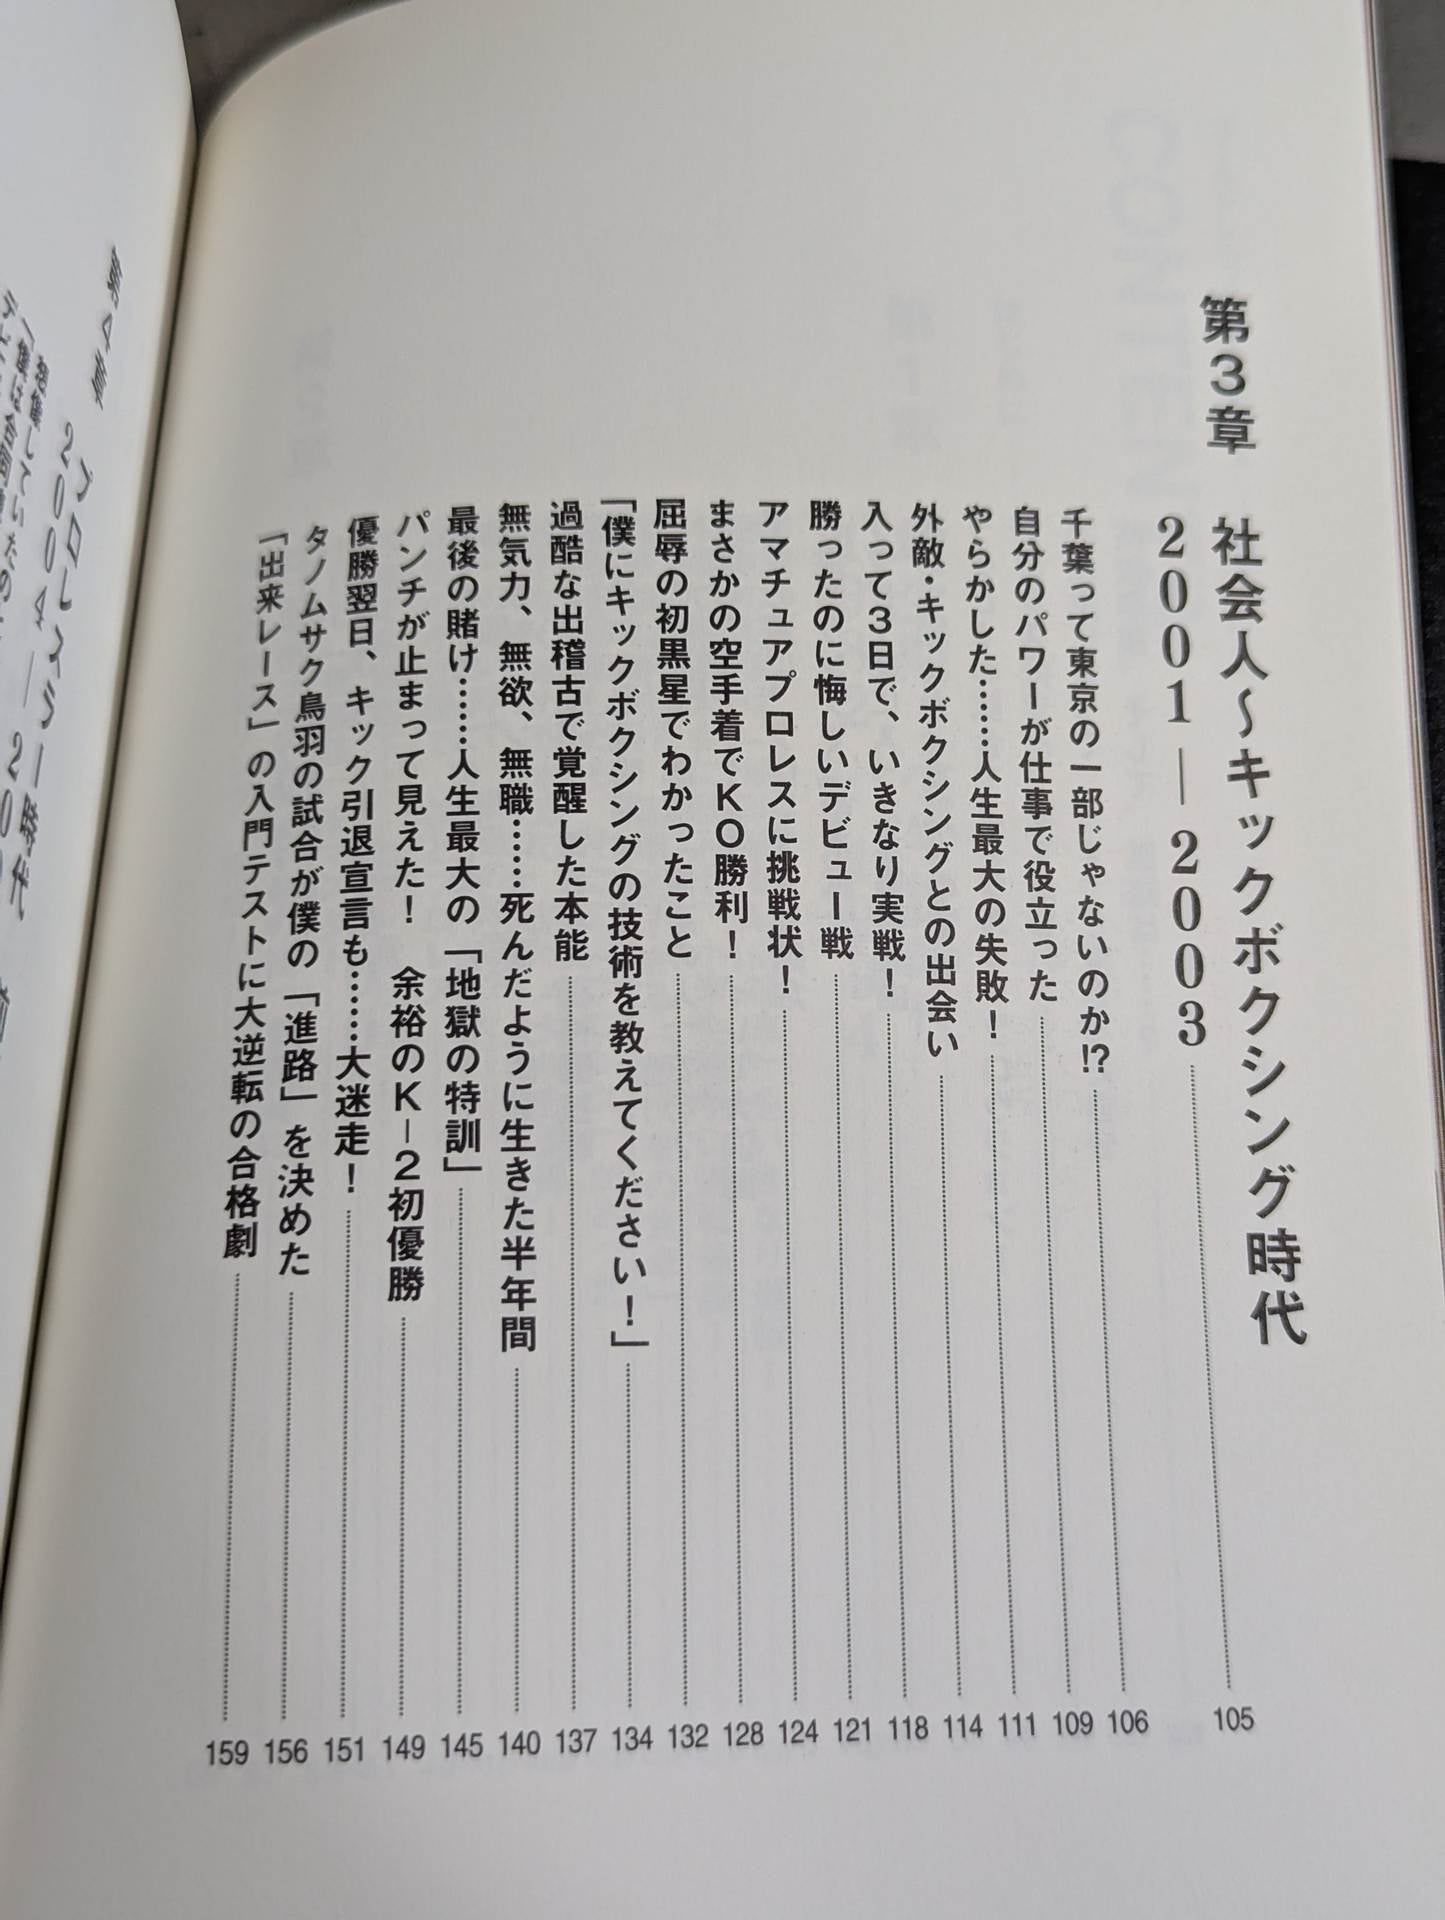 第3章 社会人〜キックボクシング時代
2001―2003 105
千葉って東京の一部じゃないのか!? 106
自分のパワーが仕事で役立った 109
やらかした……人生最大の失敗！ 111
外敵・キックボクシングとの出会い 114
入って3日で、いきなり実戦！ 118
勝ったのに悔しいデビュー戦 121
アマチュアプロレスに挑戦状！ 124
まさかの空手着でKO勝利！ 128
屈辱の初黒星でわかったこと 132
「僕にキックボクシングの技術を教えてください！」 134
過酷な出稽古で覚醒した本能 137
無気力、無欲、無職……死んだように生きた半年間 140
最後の賭け……人生最大の「地獄の特訓」 145
パンチが止まって見えた！ 余裕のK－2初優勝 149
優勝翌日、キック引退宣言も……大迷走！ 151
タノムサク鳥羽の試合が僕の「進路」を決めた 156
「出来レース」の入門テストに大逆転の合格劇 159
第4章 プロレスラー時代